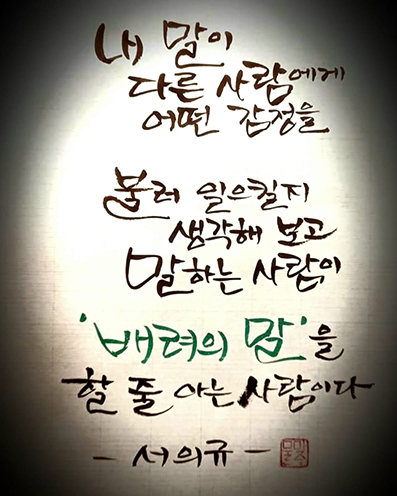 내 말이
다른 사람에게
어떤 감정을
불러 일으킬지
생각해 보고
말하는 사람이
'배려의 말'을
할 줄 아는 사람이다
- 서의규 -